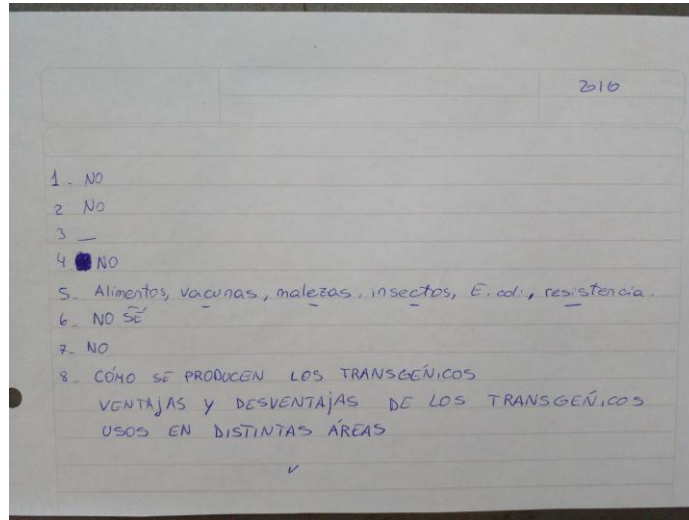 2010
1_ NO
2 NO
3 _
4 NO
5_ Alimentos, vacunas, malezas, insectos, E. coli, resistencia.
6_ NO SÉ
7_ NO
8_ CÓMO SE PRODUCEN LOS TRANSGÉNICOS
VENTAJAS Y DESVENTAJAS DE LOS TRANSGÉNICOS
USOS EN DISTINTAS ÁREAS